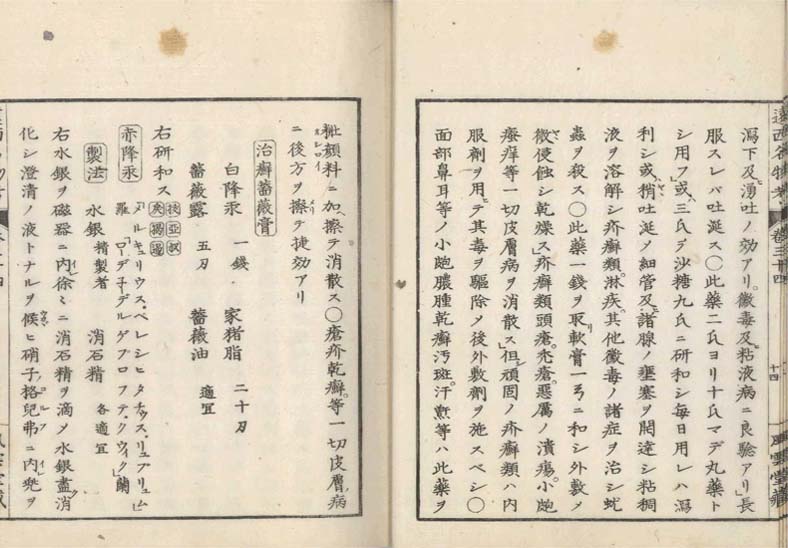 遠西名物考 卷三十四 十四 風雲堂藏
瀉下及湧吐ノ効アリ。黴毒及粘液病ニ良驗アリ」長
服スレバ吐涎ス〇此藥二氏ヨリ十氏マデ丸藥ト
シ用フ」或三氏デ沙糖九氏ニ研和シ毎日用レハ瀉
利シ或稍吐涎ノ細管及諸腺ノ壅塞ヲ開達シ粘稠
液ヲ溶解シ疥癬類淋疾其他黴毒ノ諸症ヲ治シ蚘
蟲ヲ殺ス〇此藥一錢ヲ取リ軟膏一ヲニ和シ外敷メ
微侵蝕シ乾燥ス」疥癬類頭瘡禿瘡惡厲ノ潰瘍小皰
瘙痒等一切皮膚病ヲ消散ス」但頑固ノ疥癬類ハ内
服劑ヲ用テ其毒ヲ驅除メ後外敷劑ヲ施スベシ〇
面部鼻耳等ノ小皰膿腫乾癬汚斑汗㿋等ハ此藥ヲ
粃顏料ニ加擦テ消散ス〇瘡疥乾癬等一切皮膚病
ニ後方ヲ擦テ捷効アリ
治癬薔薇膏
白降汞 一錢 家猪脂 二十刄
薔薇露 五刄 薔薇油 適宜
右研和ス
赤降汞 「メルキュリウス・ペレシピタチュス・リュブリュム」
羅 「ローデ子デルゲプロフテクウィク」蘭
製法 水銀 精製者 消石精 各適宜
右水銀ヲ磁器ニ内徐々ニ消石精ヲ滴メ水銀盡消
化シ澄清ノ液トナルヲ候ヒ硝子格兒弗ニ内兠ヲ